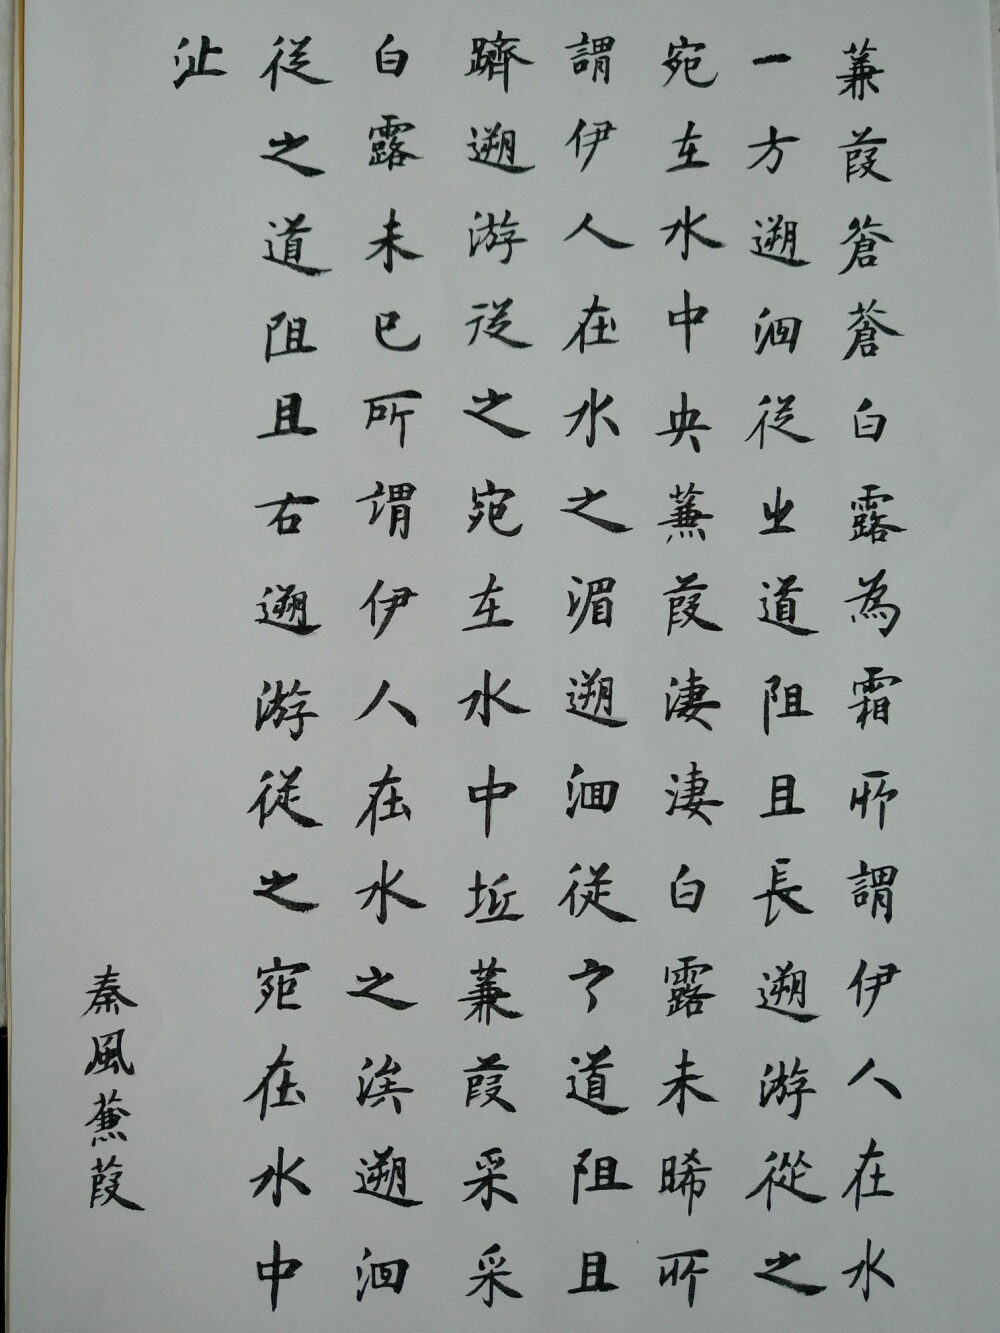 蒹葭蒼蒼白露為霜所謂伊人在水
一方遡洄從之道阻且長遡游從之
宛在水中央蒹葭淒淒白露未晞所
謂伊人在水之湄遡洄從之道阻且
躋遡游從之宛在水中坻蒹葭采采
白露未已所謂伊人在水之涘遡洄
從之道阻且右遡游從之宛在水中
沚
秦風蒹葭